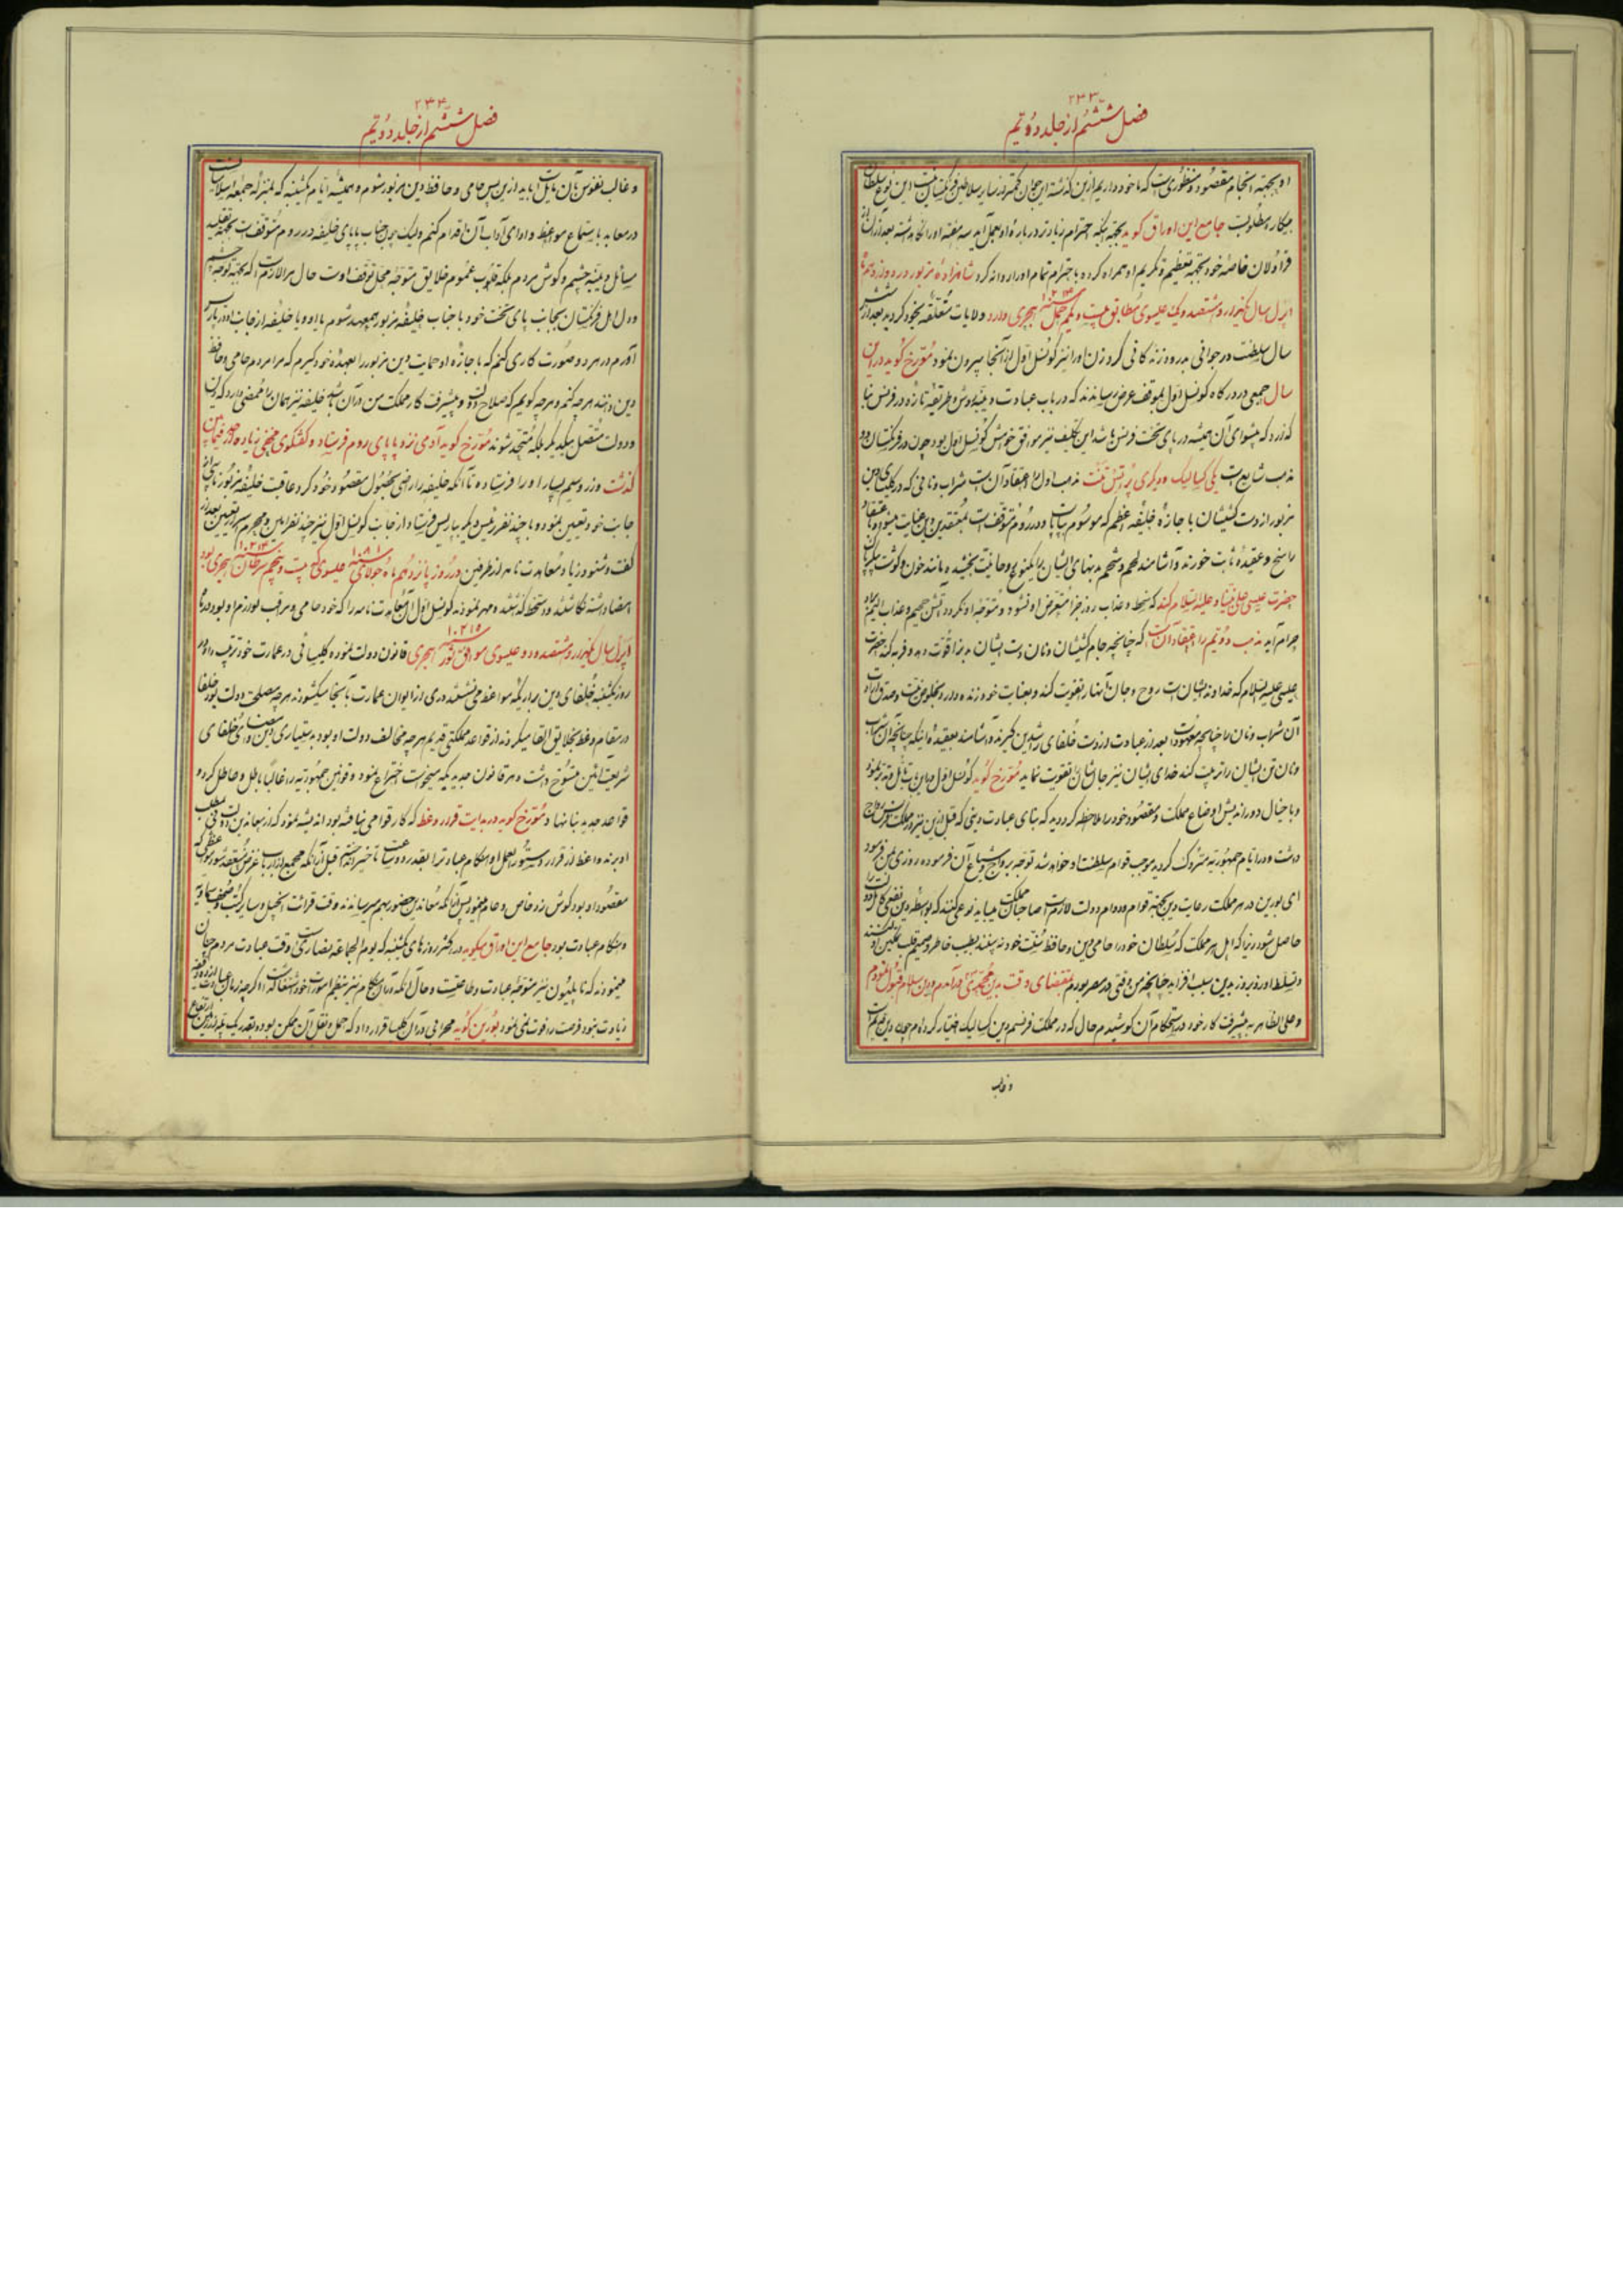 ۲۳۳
فصل ششم از جلد دویم
او بجهته انجام مقصود و منظوری است که ما خود داریم ازین گذشته این جوان کمتر از سایر سلاطین فرنگستان نیست این نوع سلطان
بیکار مطلوبست جامع این اوراق گوید بجهته اینکه احترام زیادتر در باره او بعمل آید سه هفته او را نگاه داشته بعد از آن از
قراولان خاصه خود بجهته تعظیم و تکریم او همراه کرده با احترام تمام او را روانه کرد شاهزاده مزبور در روز
اپرل سال یکهزار و هشتصد و یک عیسوی مطابق بیست و یکم حمل سنه هجری وارد ولایات متعلقه بخود گردید بعد از شش
سال سلطنت در جوانی بدرود زندگانی کرد زن او را نیز کونسل اول از آنجا بیرون نمود مورخ گوید در این
سال جمعی در درگاه کونسل اول بموقف عرض رسانیدند که در باب عبادت و روش و طریقه تازه در فرنس بنا
گذارد که پیشوای آن همیشه در پای تخت فرنس باشد این تکلیف نیز موافق خواهش کونسل اول بود چون در فرنگستان دو
مذهب شایع است یکی کتالیک و دیگری پرتستنت مذهب اول اعتقاد آن است شراب و نانی که در کلیسای دین
مزبور از دست کشیشان با اجازه خلیفه اعظم که موسوم بپاپاست و در روم متوقف است بمعتقدین دین عنایت میشود با اعتقاد
راسخ و عقیده ثابت خورند و آشامند لحم و شحم بدنهای ایشان را یکنوع روحانیت بخشیده مانند خون و گوشت پیکر
حضرت عیسی علی نبینا و علیه السلام کند که سخط و عذاب روز جزا متعرض او نشود و متوجه او نگردد آتش جحیم و عذاب الیم
حرام آید مذهب دویم را اعتقاد آن است که چنانچه جام کشیشان و نان دست ایشان بدن را قوت دهد و فربه کند حضرت
عیسی علیه السلام که خداوند ایشان است روح و جان آنها را تقویت کند و بعنایت خود زنده دارد و بخلوص نیت و صدق ارادت
آن شراب و نان را چنانچه معهود است بعد از عبادت از دست خلفای راشدین گیرند و آشامند بعقیده اینکه چنانچه آن شراب
و نان تن ایشان را تربیت کند خدای ایشان نیز جان ایشان را تقویت نماید مورخ گوید کونسل اول درین باب تأمل و تدبر نمود
و با خیال دوراندیش اوضاع مملکت و مقصود خود را ملاحظه کرد دید که بنای عبادت دینی که قبل ازین نیز در مملکت فرنس رواج
داشت و در ایام جمهوریه متروک گردید موجب قوام سلطنت او خواهد شد توجه برواج و شیاع آن فرموده روزی بمن فرمود
ای بورین در هر مملکت رعایت دین بجهته قوام و دوام دولت لازم است صاحبان مملکت میباید نوعی کنند که بواسطه دین نفعی کامل
حاصل شود زیرا که اهل هر مملکت که سلطان خود را حامی دین و حافظ سنت خود بینند بطیب خاطر و صمیم قلب تمکین او کنند
و تسلط او روزبروز بدین سبب افزاید چنانچه من وقتی در مصر بودم بمقتضای وقت بدین محمدی در آمدم و دین اسلام قبول نمودم
و علی الظاهر به پیشرفت کار خود در استحکام آن کوشیدم حال که در مملکت فرنسم دین کتالیک اختیار کرده‌ام چون دین قدیم است
و غالب
۲۳۴
فصل ششم از جلد دویم
و غالب نفوس بآن مایل است باید ازین پس حامی و حافظ دین مزبور شوم و همیشه ایام یکشنبه که بمنزله جمعه اسلامیان است
در معابد باستماع مواعظ و ادای آداب آن اقدام کنم ولیکن چون جناب پاپای خلیفه در روم متوقف است بجهته تقلید
مسائل دینیه چشم و گوش مردم بلکه قلوب عموم خلایق متوجه محل توقف اوست حال مرا لازم است که بجهته توجه چشم
و دل اهل فرنگستان بجانب پای تخت خود با جناب خلیفه مزبور همعهد شوم یا او و یا خلیفه از جانب او در پاریس
آورم در هر دو صورت کاری کنم که با اجازه او حمایت دین مزبور را بعهده خود گیرم که مرا مردم حامی و حافظ
دین دانند هر چه کنم و هر چه گویم که صلاح دولت و پیشرفت کار مملکت من در آن باشد خلیفه نیز همان را ممضی دارد که دین
و دولت متصل بیکدیگر بلکه متحد شوند مورخ گوید آدمی نزد پاپای روم فرستاد و گفتگوی مخفی زیاده در میان
گذشت وزر و سیم بسیار او را فرستاد تا آنکه خلیفه را راضی بحصول مقصود خود کرد عاقبت خلیفه مزبور نایبی از
جانب خود تعیین نمود و با چند نفر رئیس دیگر بپاریس فرستاد از جانب کونسل اول نیز چند نفر امین و محرم سر تعیین بعد از
گفت و شنود زیاد معاهدت نامه از طرفین در روز پانزدهم ماه جولای سنه ۱۸۰۱ عیسوی که بیست و پنجم سرطان سنه هجری بود
امضا داشته نگاشتند و دستخط گذاشتند و مهر نمودند کونسل اول آن معاهدت نامه را که خود حامی و مراقب لوازم او بود در ماه
اپرل سال یکهزار و هشتصد و دو عیسوی موافق ثور سنه هجری قانون دولت نمود و کلیسائی در عمارت خود ترتیب داد و در
روز یکشنبه خلفای دین بر اریکه مواعظ می نشستند دری از ایوان عمارت بآنجا میگشودند هر چه مصلحت دولت بود خلفا
در مقام وعظ بخلایق القا میکردند از قواعد مملکتی قدیم هر چه مخالف دولت او بود بدستیاری دین و خلفای
شریعت آئین منسوخ داشت و هر قانون جدیدیکه میخواست اختراع نمود و قوانین جمهوریه را غالباً باطل و عاطل کرد و
قواعد جدید بنا نهاد و مورخ گوید در بدایت قرار وعظ که کار قوامی نیافته بود اندیشه نمود که از معاندین دولت
او بودند واعظ از قرار دستورالعمل او احکام عبادت را بقدر دو ساعت تأخیر انداخته قبل از آنکه مجمع ارباب غرض منعقد شود
مقصود او بود گوش زد خاص و عام مینمود پس از آنکه معاندین حضور بهم میرسانیدند وقت قرائت انجیل و سایر کتب و صحف سماویه
و هنگام عبادت بود جامع این اوراق میگوید در اکثر روزهای یکشنبه که یوم الجماعه نصاری است وقت عبادت مردم چنان
مینمودند که ناپلئون نیز متوجه عبادت و طاعتست و حال آنکه در آن هنگام نیز بتنظیم امورات خود اشتغال داشت
زیادت نبود فرصت را فوت نمی نمود بورین گوید محرابی در آن کلیسا قرار داد که حمل و نقل آن ممکن بوده بقدر یک